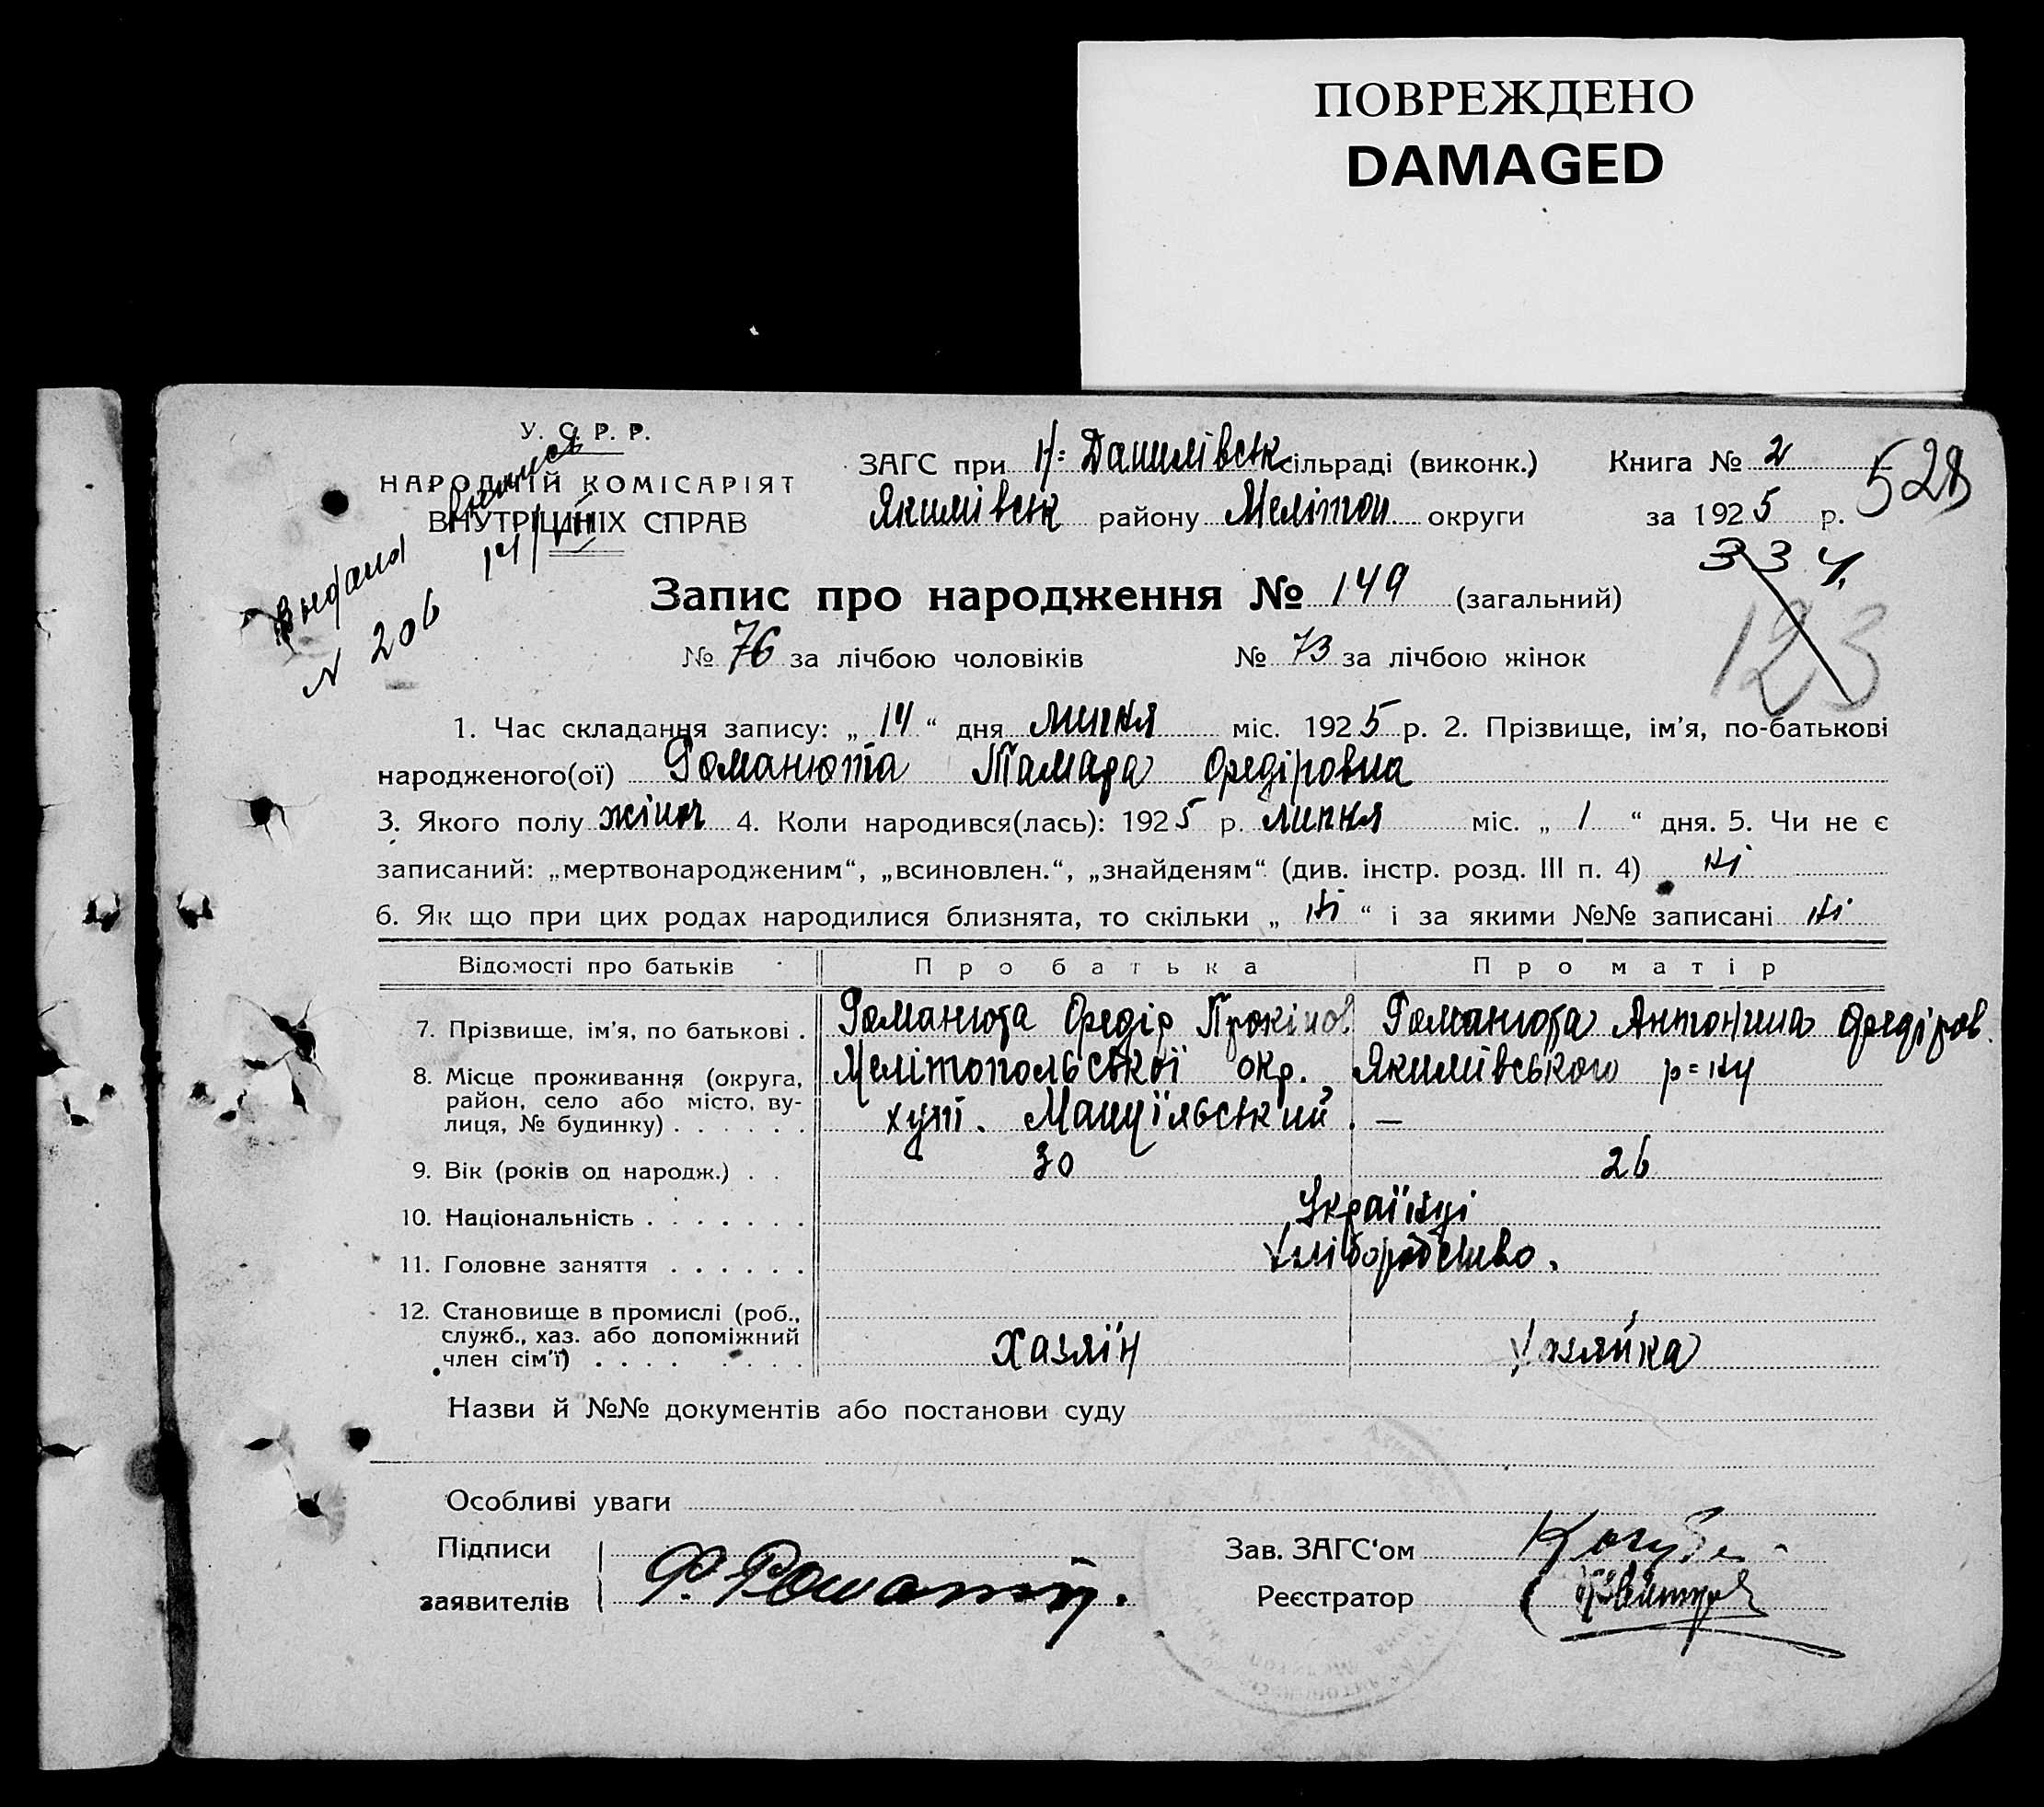 ПОВРЕЖДЕНО
DAMAGED
У. С. Р. Р.
НАРОДНІЙ КОМІСАРІЯТ
ВНУТРІШНІХ СПРАВ
Выдана выпись
N 206 14/VII
ЗАГС при Н=Данилівськ сільраді (виконк.) Книга № 2
528
Якимівськ району Мелітоп. округи за 1925 р.
334
123
Запис про народження № 149 (загальний)
№ 76 за лічбою чоловіків № 73 за лічбою жінок
1. Час складання запису: „ 14 “ дня липня міс. 1925 р. 2. Прізвище, ім'я, по-батькові
народженого(ої) Романюта Тамара Федіровна
3. Якого полу жіноч 4. Коли народився(лась): 1925 р. липня міс. „ 1 “ дня. 5. Чи не є
записаний: „мертвонародженим“, „всиновлен.“, „знайденям“ (див. інстр. розд. III п. 4) ні
6. Як що при цих родах народилися близнята, то скільки „ ні “ і за якими №№ записані ні
Відомості про батьків Про батька Про матір
7. Прізвище, ім'я, по батькові . Романюта Федір Прокіпов Романюта Антонина Федіров.
8. Місце проживання (округа, Мелітопольської окр. Якимівського р=ну
район, село або місто, ву-
лиця, № будинку) . . . . . . хут. Мануїльський . —
9. Вік (років од народж.) . . 30 26
10. Національність . . . . . . . Українці
11. Головне заняття . . . . . . Хліборобство.
12. Становище в промислі (роб.,
служб., хаз. або допоміжний
член сім'ї) . . . . . . . . Хазяїн Хазяйка
Назви й №№ документів або постанови суду
Особливі уваги
Підписи
заявителів Ф. Романюта.
Зав. ЗАГС'ом
Реєстратор